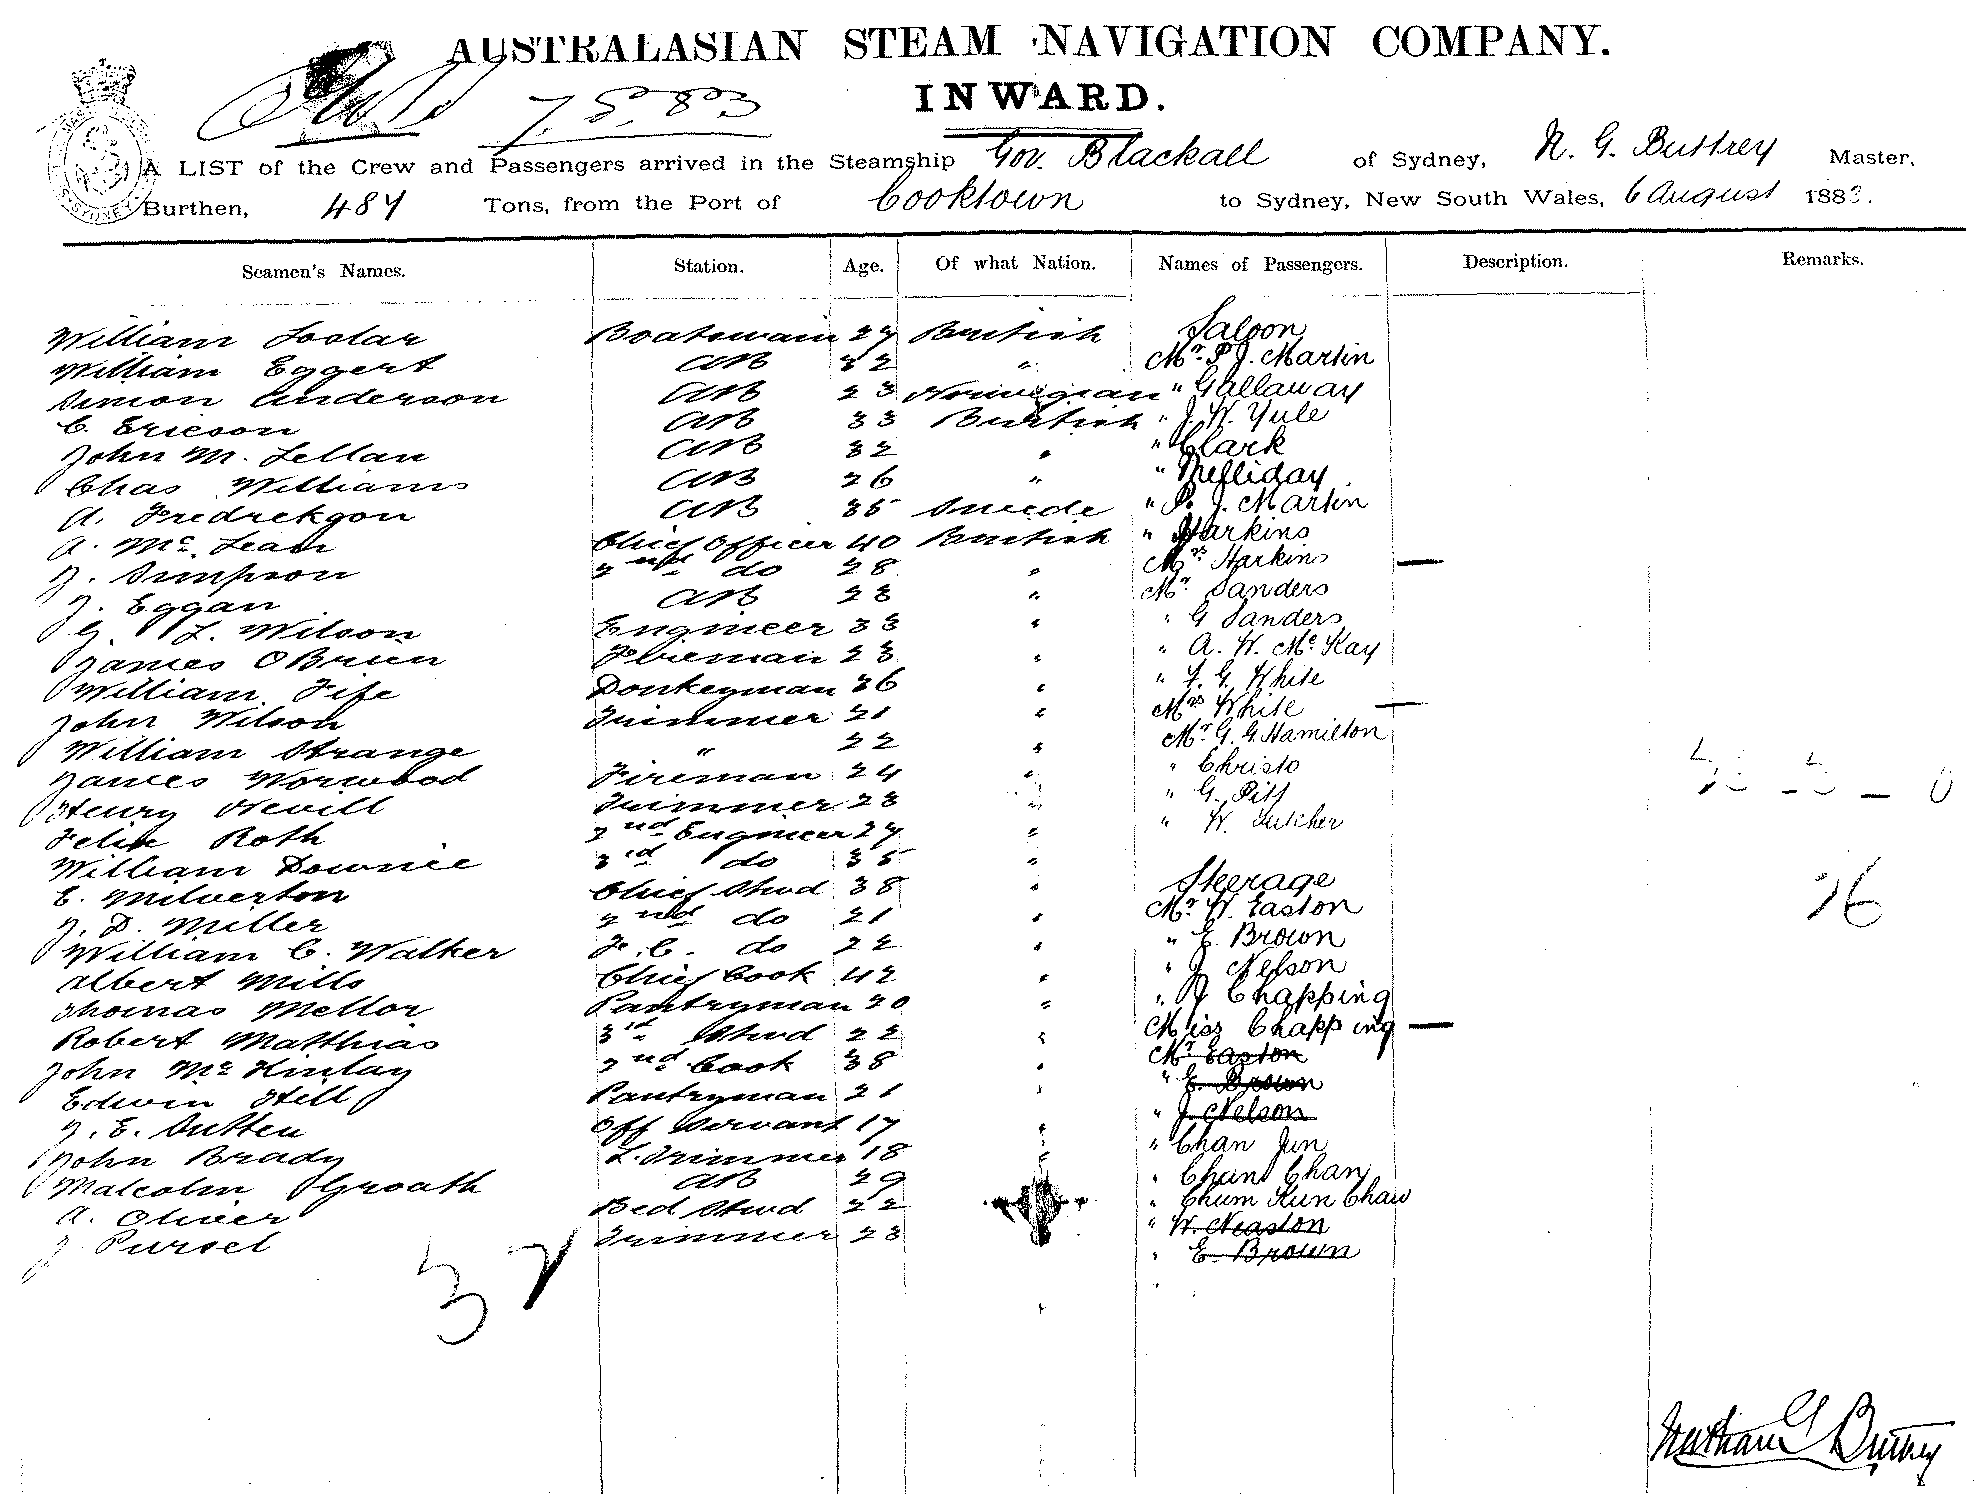 AUSTRALASIAN STEAM NAVIGATION COMPANY.
7.8.83
INWARD.
A LIST of the Crew and Passengers arrived in the Steamship Gov. Blackall of Sydney, N. G. Buttrey Master,
Burthen, 487 Tons, from the Port of Cooktown to Sydney, New South Wales, 6 August 1883.
Seamen's Names. Station. Age. Of what Nation. Names of Passengers. Description. Remarks.
William Boatswain 27 British Saloon
William Eggert AB 22 " Mr. P J. Martin
Simon Anderson AB 23 Norwegian " Gallaway
C. Ericson AB 33 British " J. W. Yule
John M. Lellan AB 32 " " Clark
Chas Williams AB 26 " "
A. AB 35 Swede " P. J. Martin
A. Mc. Lean Chief Officer 40 British " Harkins
J. Simpson 2nd do 28 " Mrs Harkins —
J. Eggan AB 23 " Mr. Sanders
G. L. Wilson Engineer 33 " " G Sanders
James OBrien Fireman 23 " " A. W. Mc Kay
William Fife Donkeyman 36 " " F. G. White
John Wilson Trimmer 21 " Mrs White —
William Strange " 22 " Mr G. G. Hamilton
James Norwood Fireman 24 " " Christo
Henry Nevill Trimmer 23 " " G. Pitt
Felix Roth 2nd Engineer 27 " " W. Butcher
William Downie 3rd do 35 "
E. Milverton Chief Stwd 38 " Steerage
J. D. Miller 2nd do 21 " Mr. W. Easton
William C. Walker F. C. do 22 " " E Brown
Albert Mills Chief Cook 42 " " J Nelson
Thomas Mellor Pantryman 20 " " J Chapping
Robert Matthias 3rd Stwd 22 " Miss Chapping —
John Mc Kinlay 2nd Cook 38 " Mr Easton
Edwin Hill Pantryman 21 " " E. Brown
J. E. Sutten Off Servant 17 " " J. Nelson
John Brady L. Trimmer 18 " " Chan Jun
Malcolm Groath AB 29 " Chun Chan
A. Oliver Bed Stwd 22 " Chum Kun Chaw
J. Pursel Trimmer 23 " W. Neaston
" E. Brown
32
Nathan G Buttrey